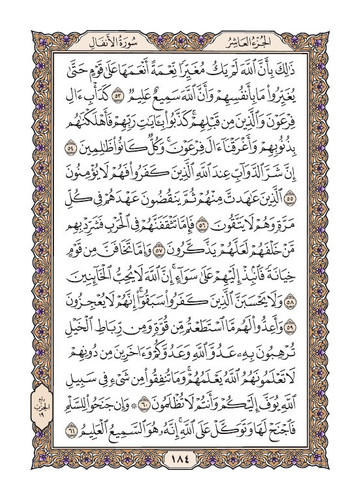 الجزء العاشر
سورة الأنفال
ذَٰلِكَ بِأَنَّ ٱللَّهَ لَمْ يَكُ مُغَيِّرًا نِّعْمَةً أَنْعَمَهَا عَلَىٰ قَوْمٍ حَتَّىٰ
يُغَيِّرُوا۟ مَا بِأَنفُسِهِمْ وَأَنَّ ٱللَّهَ سَمِيعٌ عَلِيمٌ ٥٣ كَدَأْبِ ءَالِ
فِرْعَوْنَ وَٱلَّذِينَ مِن قَبْلِهِمْ كَذَّبُوا۟ بِـَٔايَـٰتِ رَبِّهِمْ فَأَهْلَكْنَـٰهُم
بِذُنُوبِهِمْ وَأَغْرَقْنَآ ءَالَ فِرْعَوْنَ وَكُلٌّ كَانُوا۟ ظَـٰلِمِينَ ٥٤
إِنَّ شَرَّ ٱلدَّوَآبِّ عِندَ ٱللَّهِ ٱلَّذِينَ كَفَرُوا۟ فَهُمْ لَا يُؤْمِنُونَ
٥٥ ٱلَّذِينَ عَـٰهَدتَّ مِنْهُمْ ثُمَّ يَنقُضُونَ عَهْدَهُمْ فِى كُلِّ
مَرَّةٍ وَهُمْ لَا يَتَّقُونَ ٥٦ فَإِمَّا تَثْقَفَنَّهُمْ فِى ٱلْحَرْبِ فَشَرِّدْ بِهِم
مَّنْ خَلْفَهُمْ لَعَلَّهُمْ يَذَّكَّرُونَ ٥٧ وَإِمَّا تَخَافَنَّ مِن قَوْمٍ
خِيَانَةً فَٱنۢبِذْ إِلَيْهِمْ عَلَىٰ سَوَآءٍ إِنَّ ٱللَّهَ لَا يُحِبُّ ٱلْخَآئِنِينَ
٥٨ وَلَا يَحْسَبَنَّ ٱلَّذِينَ كَفَرُوا۟ سَبَقُوٓا۟ إِنَّهُمْ لَا يُعْجِزُونَ
٥٩ وَأَعِدُّوا۟ لَهُم مَّا ٱسْتَطَعْتُم مِّن قُوَّةٍ وَمِن رِّبَاطِ ٱلْخَيْلِ
تُرْهِبُونَ بِهِۦ عَدُوَّ ٱللَّهِ وَعَدُوَّكُمْ وَءَاخَرِينَ مِن دُونِهِمْ
لَا تَعْلَمُونَهُمُ ٱللَّهُ يَعْلَمُهُمْ وَمَا تُنفِقُوا۟ مِن شَىْءٍ فِى سَبِيلِ
ٱللَّهِ يُوَفَّ إِلَيْكُمْ وَأَنتُمْ لَا تُظْلَمُونَ ٦٠ ۞ وَإِن جَنَحُوا۟ لِلسَّلْمِ
فَٱجْنَحْ لَهَا وَتَوَكَّلْ عَلَى ٱللَّهِ إِنَّهُۥ هُوَ ٱلسَّمِيعُ ٱلْعَلِيمُ ٦١
الحزب
١٩
١٨٤